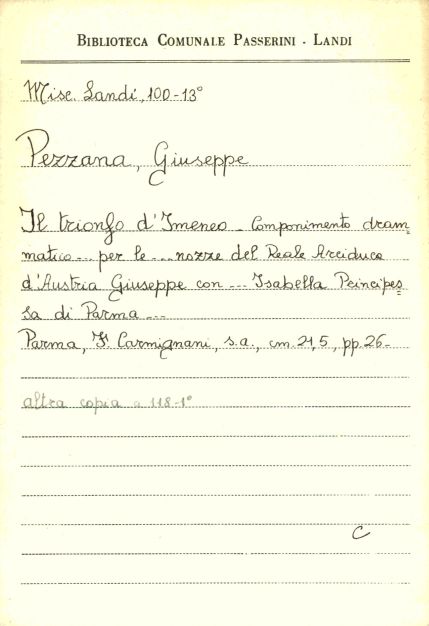 BIBLIOTECA COMUNALE PASSERINI - LANDI
Misc. Landi, 100-13°
Pezzana, Giuseppe
Il trionfo d'Imeneo - Componimento dram=
matico... per le ... nozze del Reale Arciduca
d'Austria Giuseppe con ... Isabella Principes=
sa di Parma ...
Parma, F. Carmignani, s.a., cm. 21,5, pp. 26.
altra copia a 118-1°
C